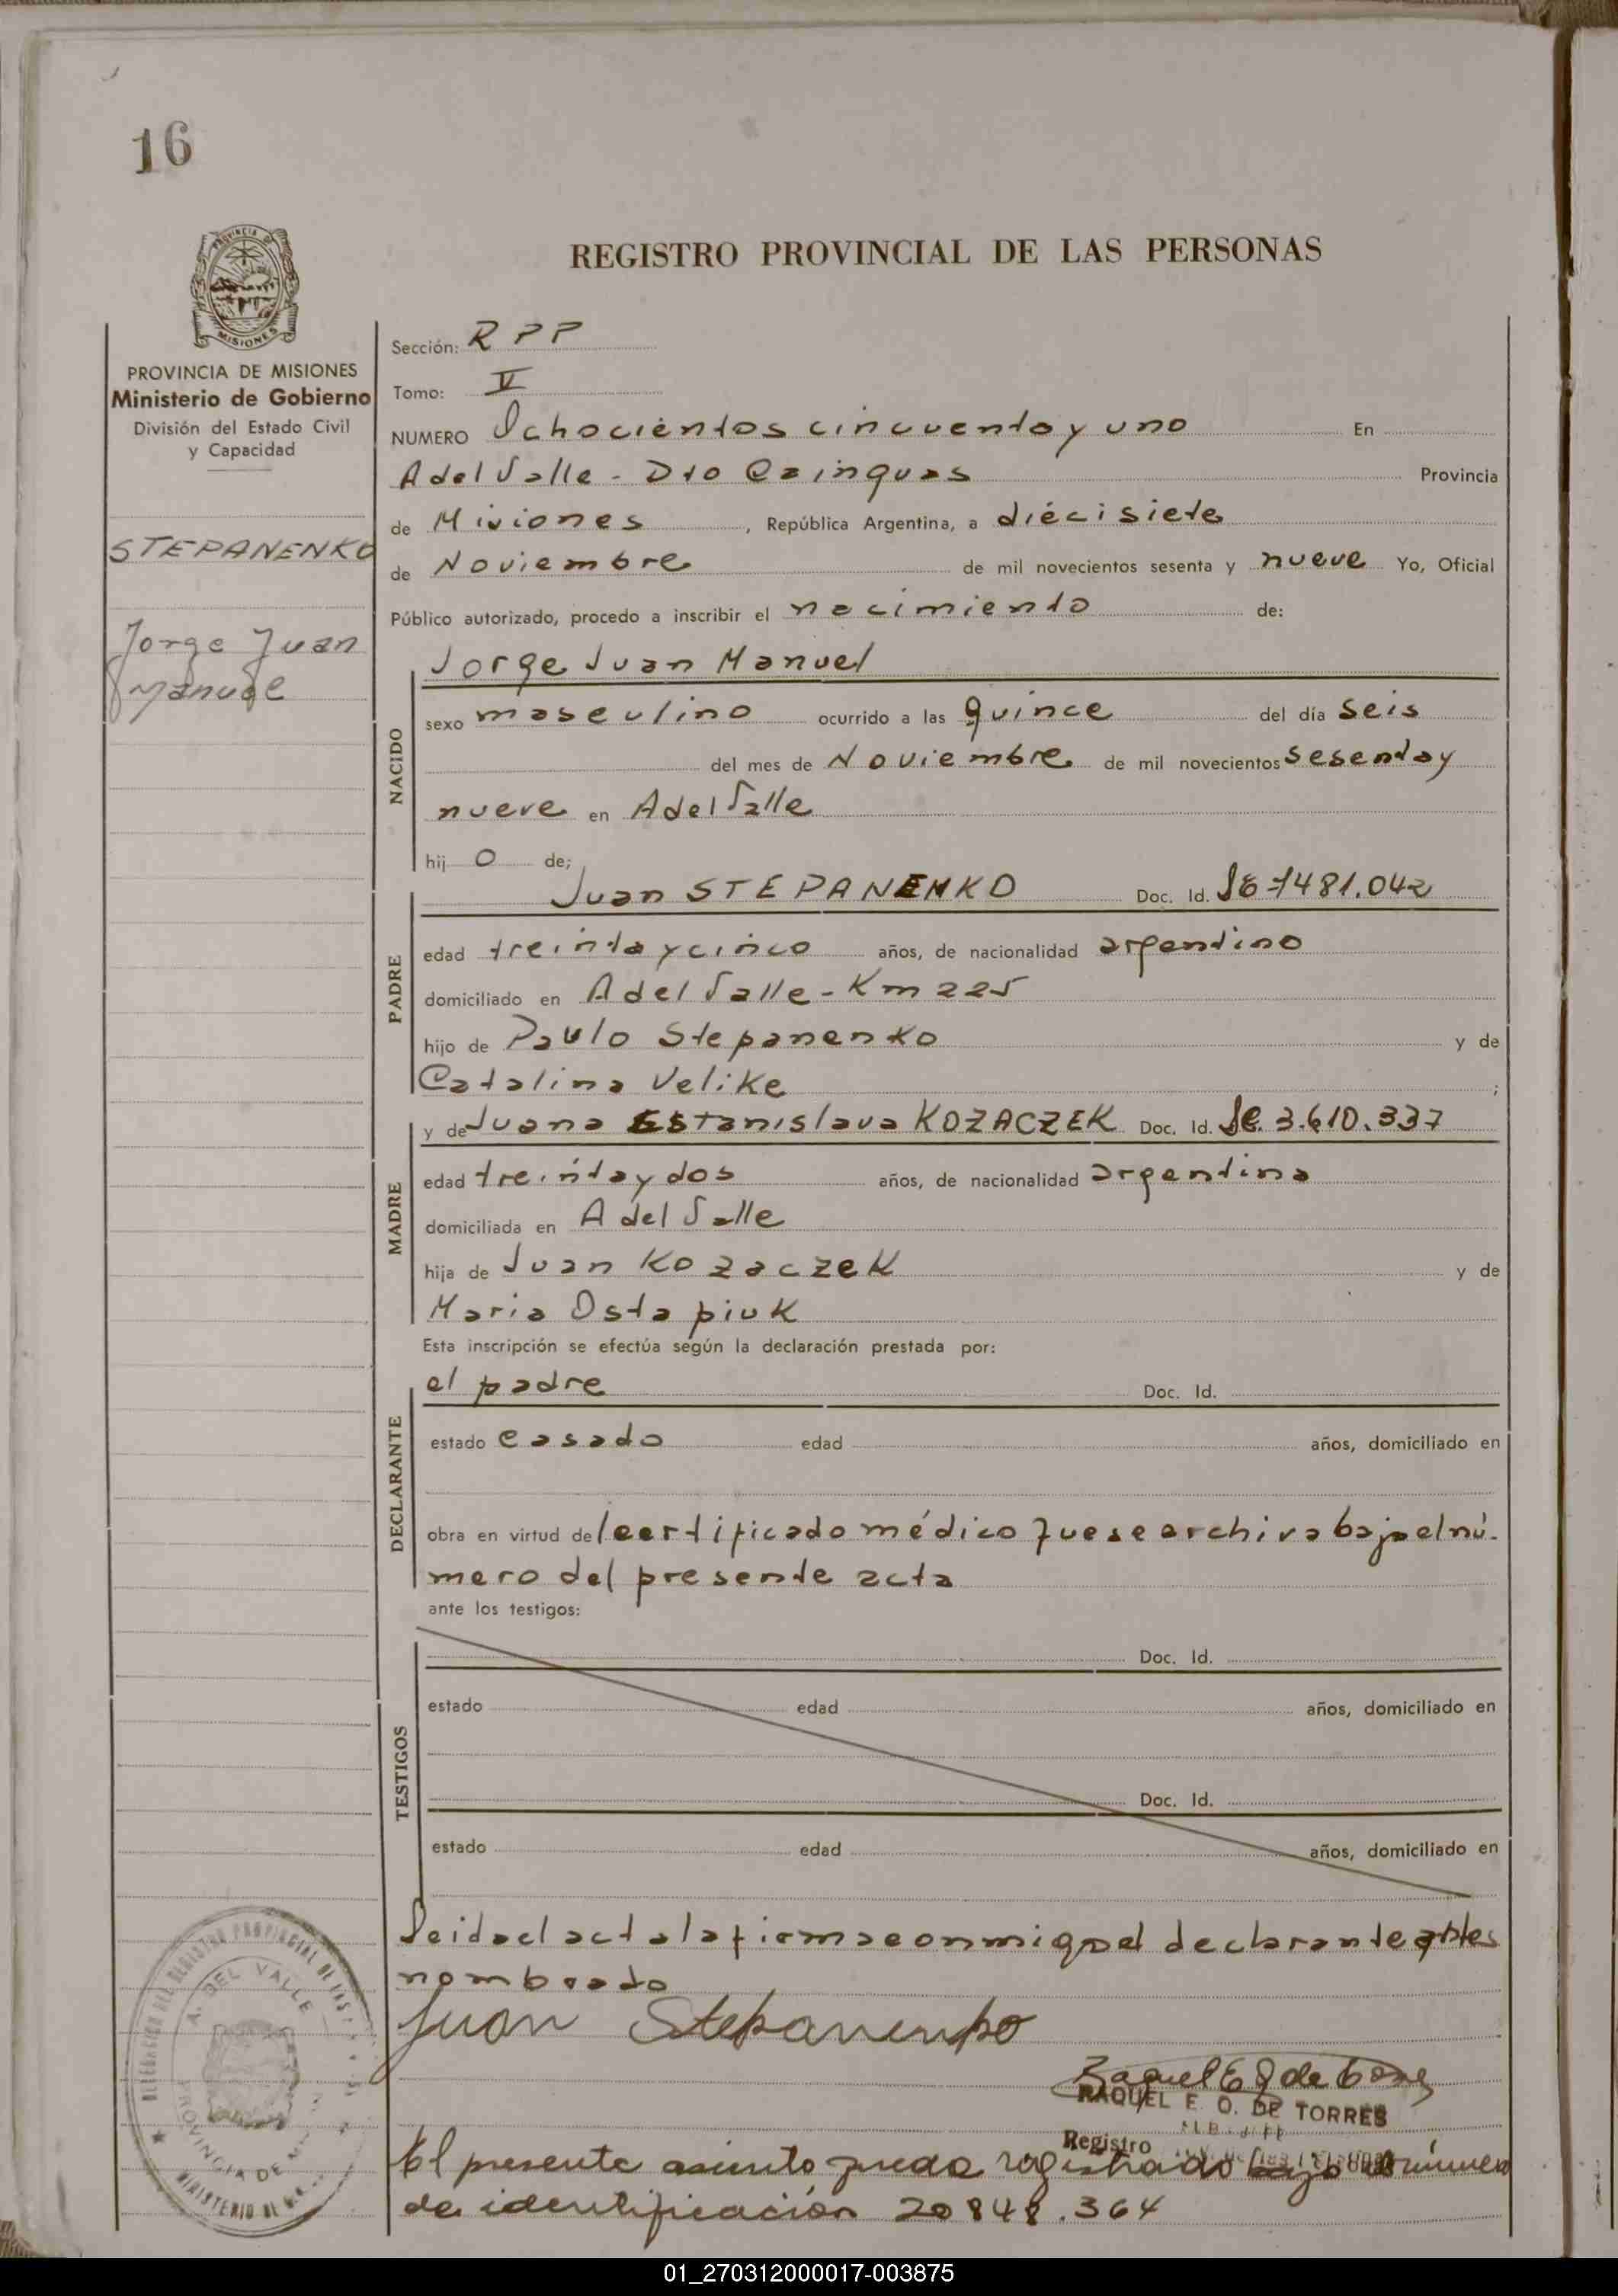 16
REGISTRO PROVINCIAL DE LAS PERSONAS
PROVINCIA DE MISIONES
Ministerio de Gobierno
División del Estado Civil
y Capacidad
STEPANENKO
Jorge Juan
Manuel
Sección: R P P
Tomo: V
NUMERO Ochocientos cincuenta y uno En
A del Valle - Dto Cainguas Provincia
de Misiones, República Argentina, a diecisiete
de Noviembre de mil novecientos sesenta y nueve Yo, Oficial
Público autorizado, procedo a inscribir el nacimiento de:
Jorge Juan Manuel
NACIDO
sexo masculino ocurrido a las quince del día seis
del mes de Noviembre de mil novecientos sesenta y
nueve en A del Valle
hij o de;
Juan STEPANENKO Doc. Id. 7481.042
PADRE
edad treinta y cinco años, de nacionalidad argentino
domiciliado en A del Valle - Km 225
hijo de Paulo Stepanenko y de
Catalina Velike ;
y de Juana Estanislava KOZACZEK Doc. Id. 3.610.337
MADRE
edad treinta y dos años, de nacionalidad argentina
domiciliada en A del Valle
hija de Juan Kozaczek y de
Maria Ostapiuk
Esta inscripción se efectúa según la declaración prestada por:
el padre Doc. Id.
DECLARANTE
estado casado edad años, domiciliado en
obra en virtud del certificado médico que se archiva bajo el nú-
mero del presente acta
ante los testigos:
TESTIGOS
Doc. Id.
estado edad años, domiciliado en
Doc. Id.
estado edad años, domiciliado en
Leida el acta la firma conmigo el declarante antes
nombrado
Juan Stepanenko
Raquel E O de Torres
RAQUEL E. O. DE TORRES
Registro
El presente asiento queda registrado bajo número
de identificación 20848.364
A. DEL VALLE
PROVINCIA DE
MISIONES
01_270312000017-003875